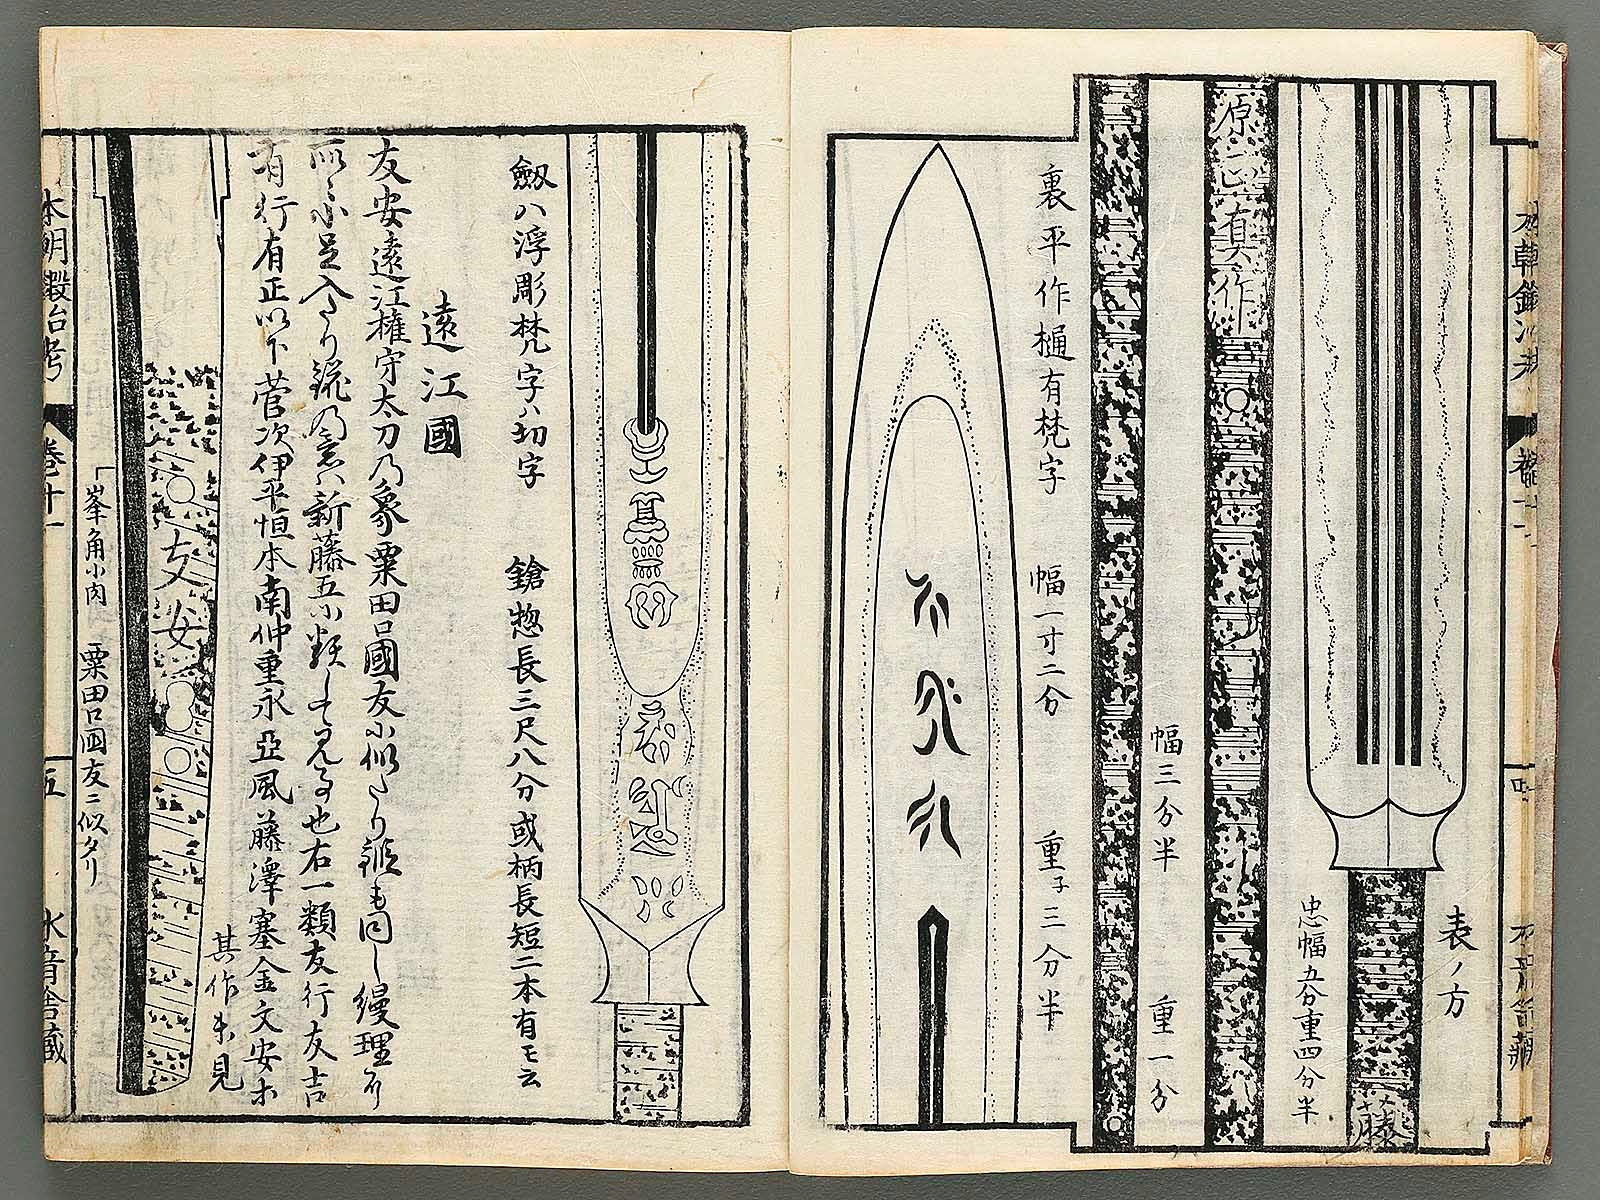 表ノ方
忠幅五分重四分半
藤
原正真作
幅三分半 重一分
裏平作樋有梵字 幅一寸二分 重子三分半
劔ハ浮彫梵字ハ切字 鎗惣長三尺八分或柄長短二本有モ云
遠江國
友安遠江權守太刀乃象粟田口國友小似たり
小足入たり 新藤五小類して 也右一類友行友吉
有行有正以下菅次伊平恒本南仲重永亞風藤澤塞金文安ホ
其作未見
友安
峯角小肉 粟田口國友ニ似タリ
本朝鍛冶考 卷十一 五 水音舎藏